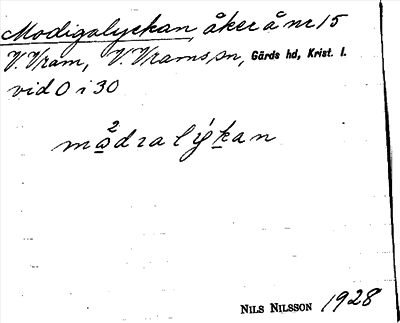 Modigalyckan, åker å nr 15
V. Vram, V. Vrams sn, Gärds hd, Krist. l.
vid O i 30
mo²dɿalýkan
NILS NILSSON 1928